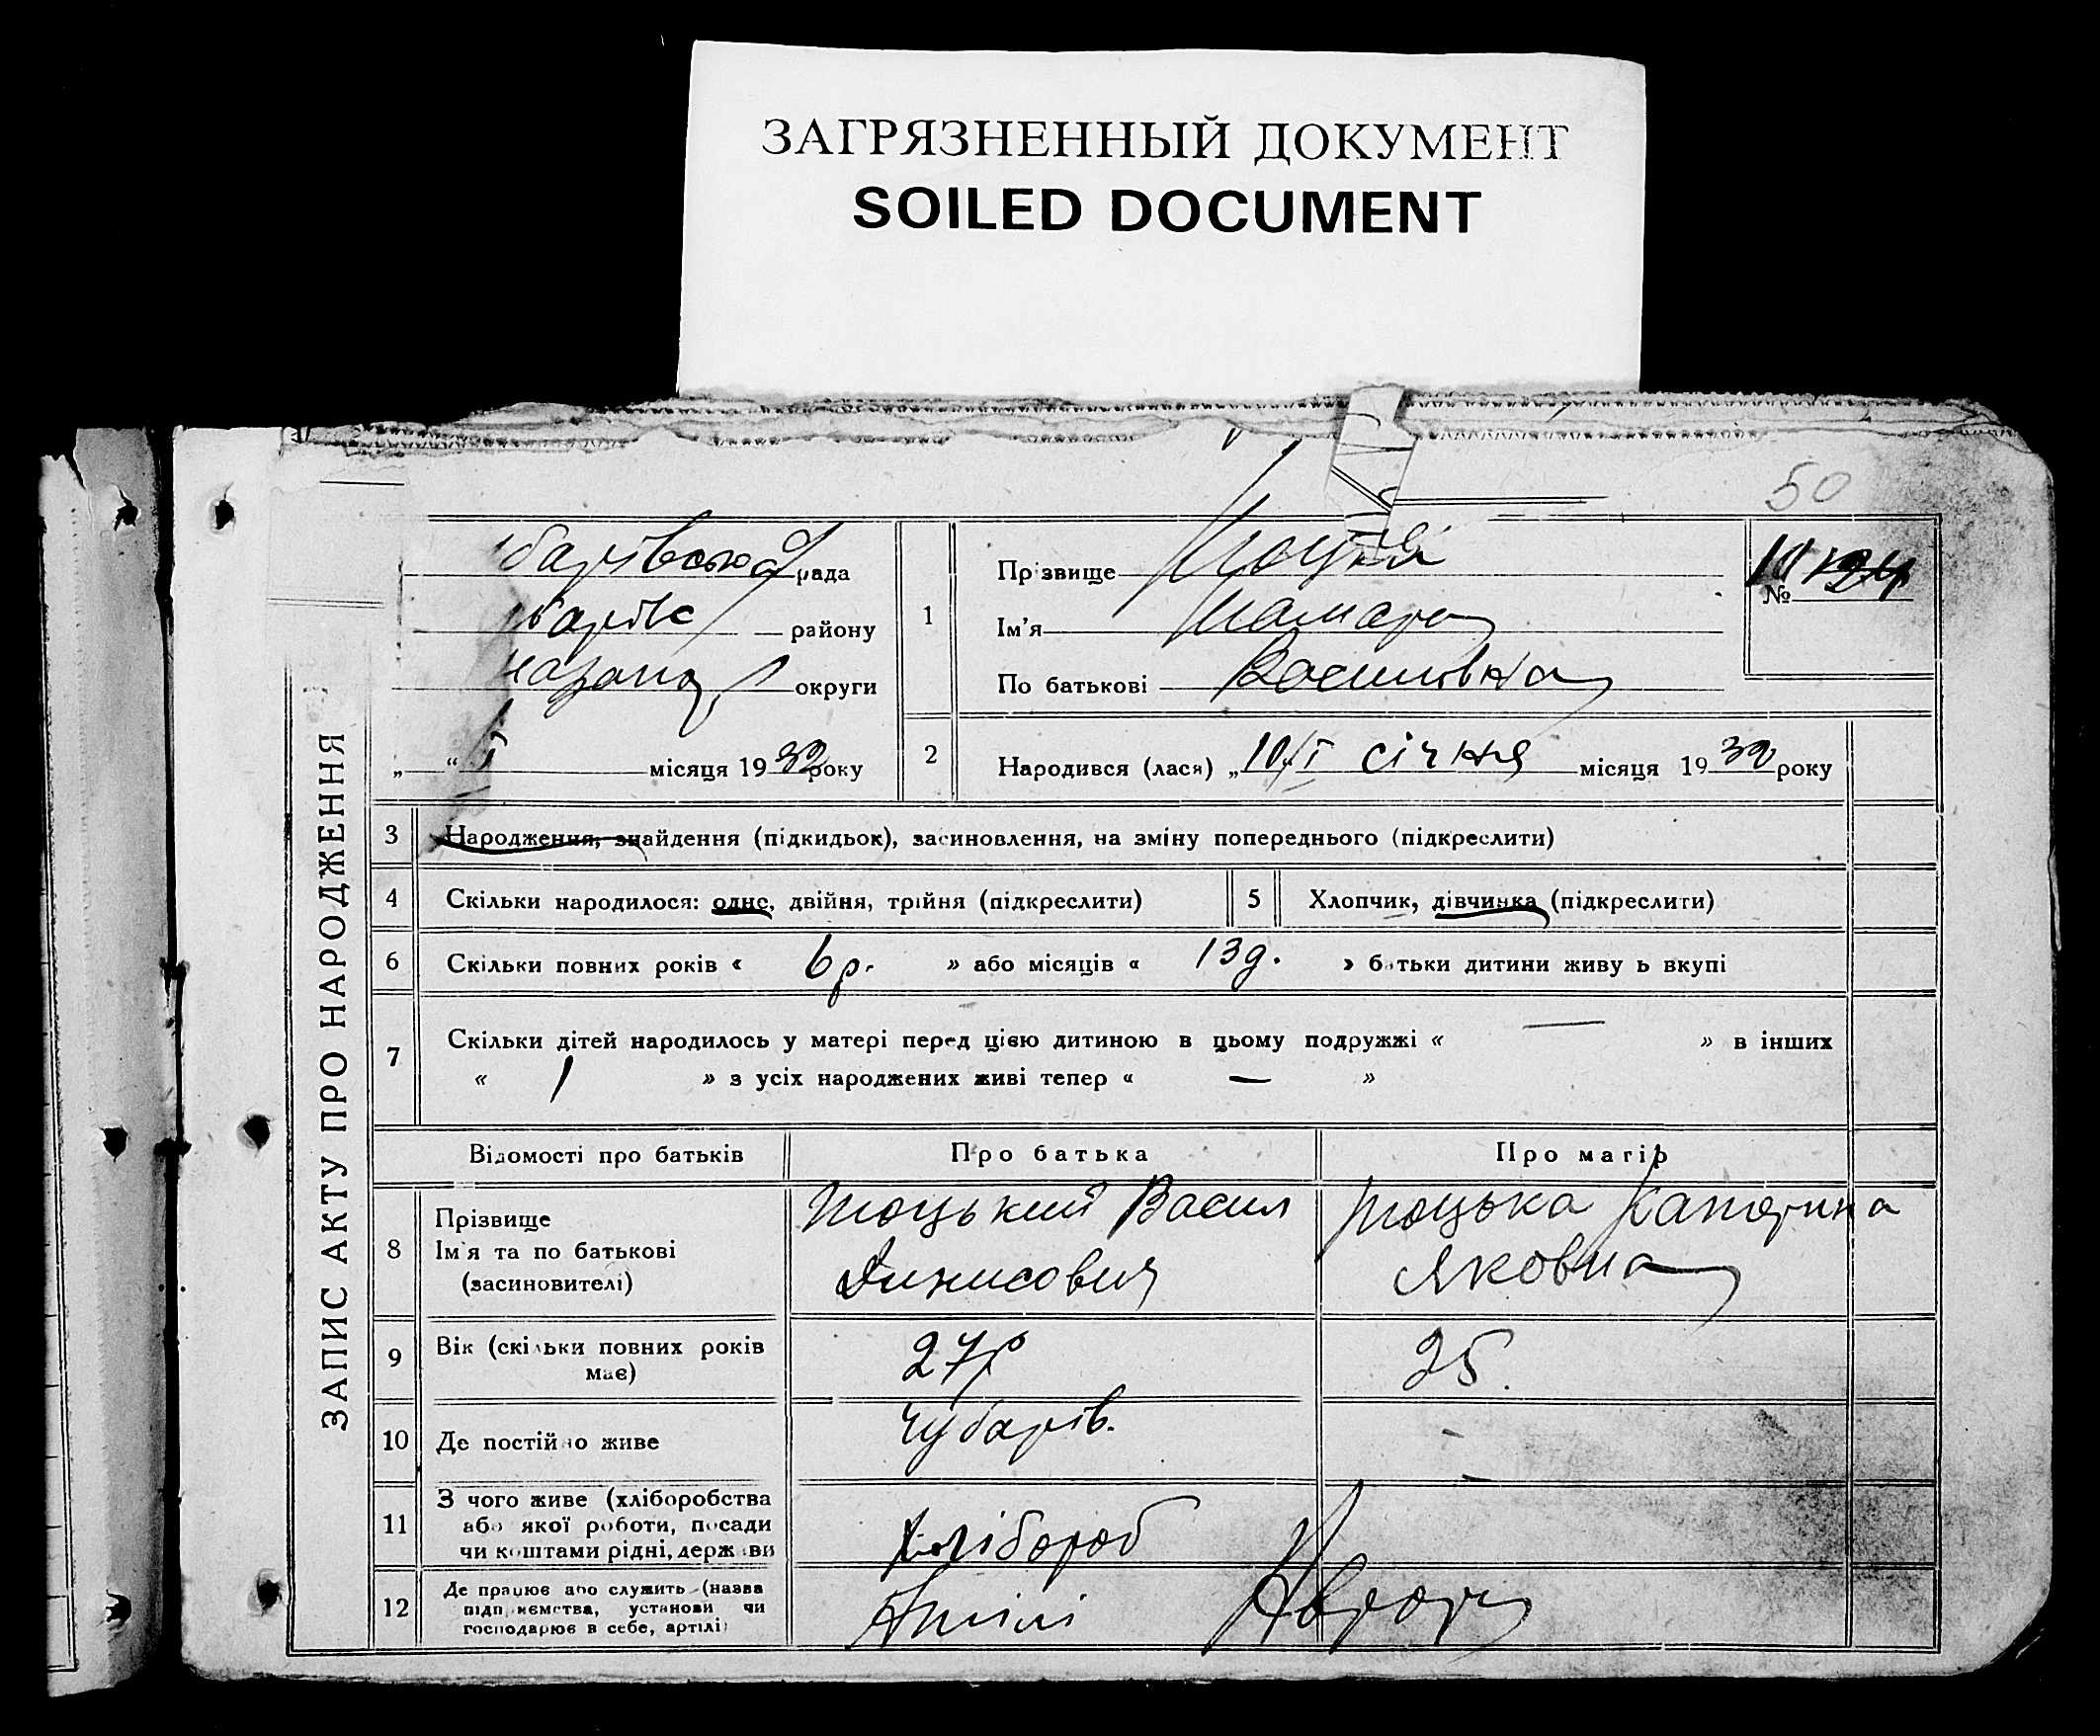 ЗАГРЯЗНЕННЫЙ ДОКУМЕНТ
SOILED DOCUMENT
50
ЗАПИС АКТУ ПРО НАРОДЖЕННЯ
барівська рада
району
округи
„ “ I місяця 1932 року
1
Прізвище
Ім’я Тамара
По батькові Василівна
№
2 Народився (лася) „10/I січня місяця 1932 року
3 Народження, знайдення (підкидьок), засиновлення, на зміну попереднього (підкреслити)
4 Скільки народилося: одне, двійня, трійня (підкреслити) 5 Хлопчик, дівчинка (підкреслити)
6 Скільки повних років « 6 р. » або місяців « 13 д. » батьки дитини живуть вкупі
7 Скільки дітей народилось у матері перед цією дитиною в цьому подружжі « — » в інших
« 1 » з усіх народжених живі тепер « — »
Відомості про батьків Про батька Про матір
8 Прізвище
Ім’я та по батькові
(засиновителі)
Тоцький Васил
Динисович
Тоцька Катерина
Яковна
9 Вік (скільки повних років
має)
27 р 25.
10 Де постійно живе Чубарів. -
11 З чого живе (хліборобства
або якої роботи, посади
чи коштами рідні, держави
хлібороб
12 Де працює або служить (назва
підприємства, установи чи
господарює в себе, артілі)
Артілі